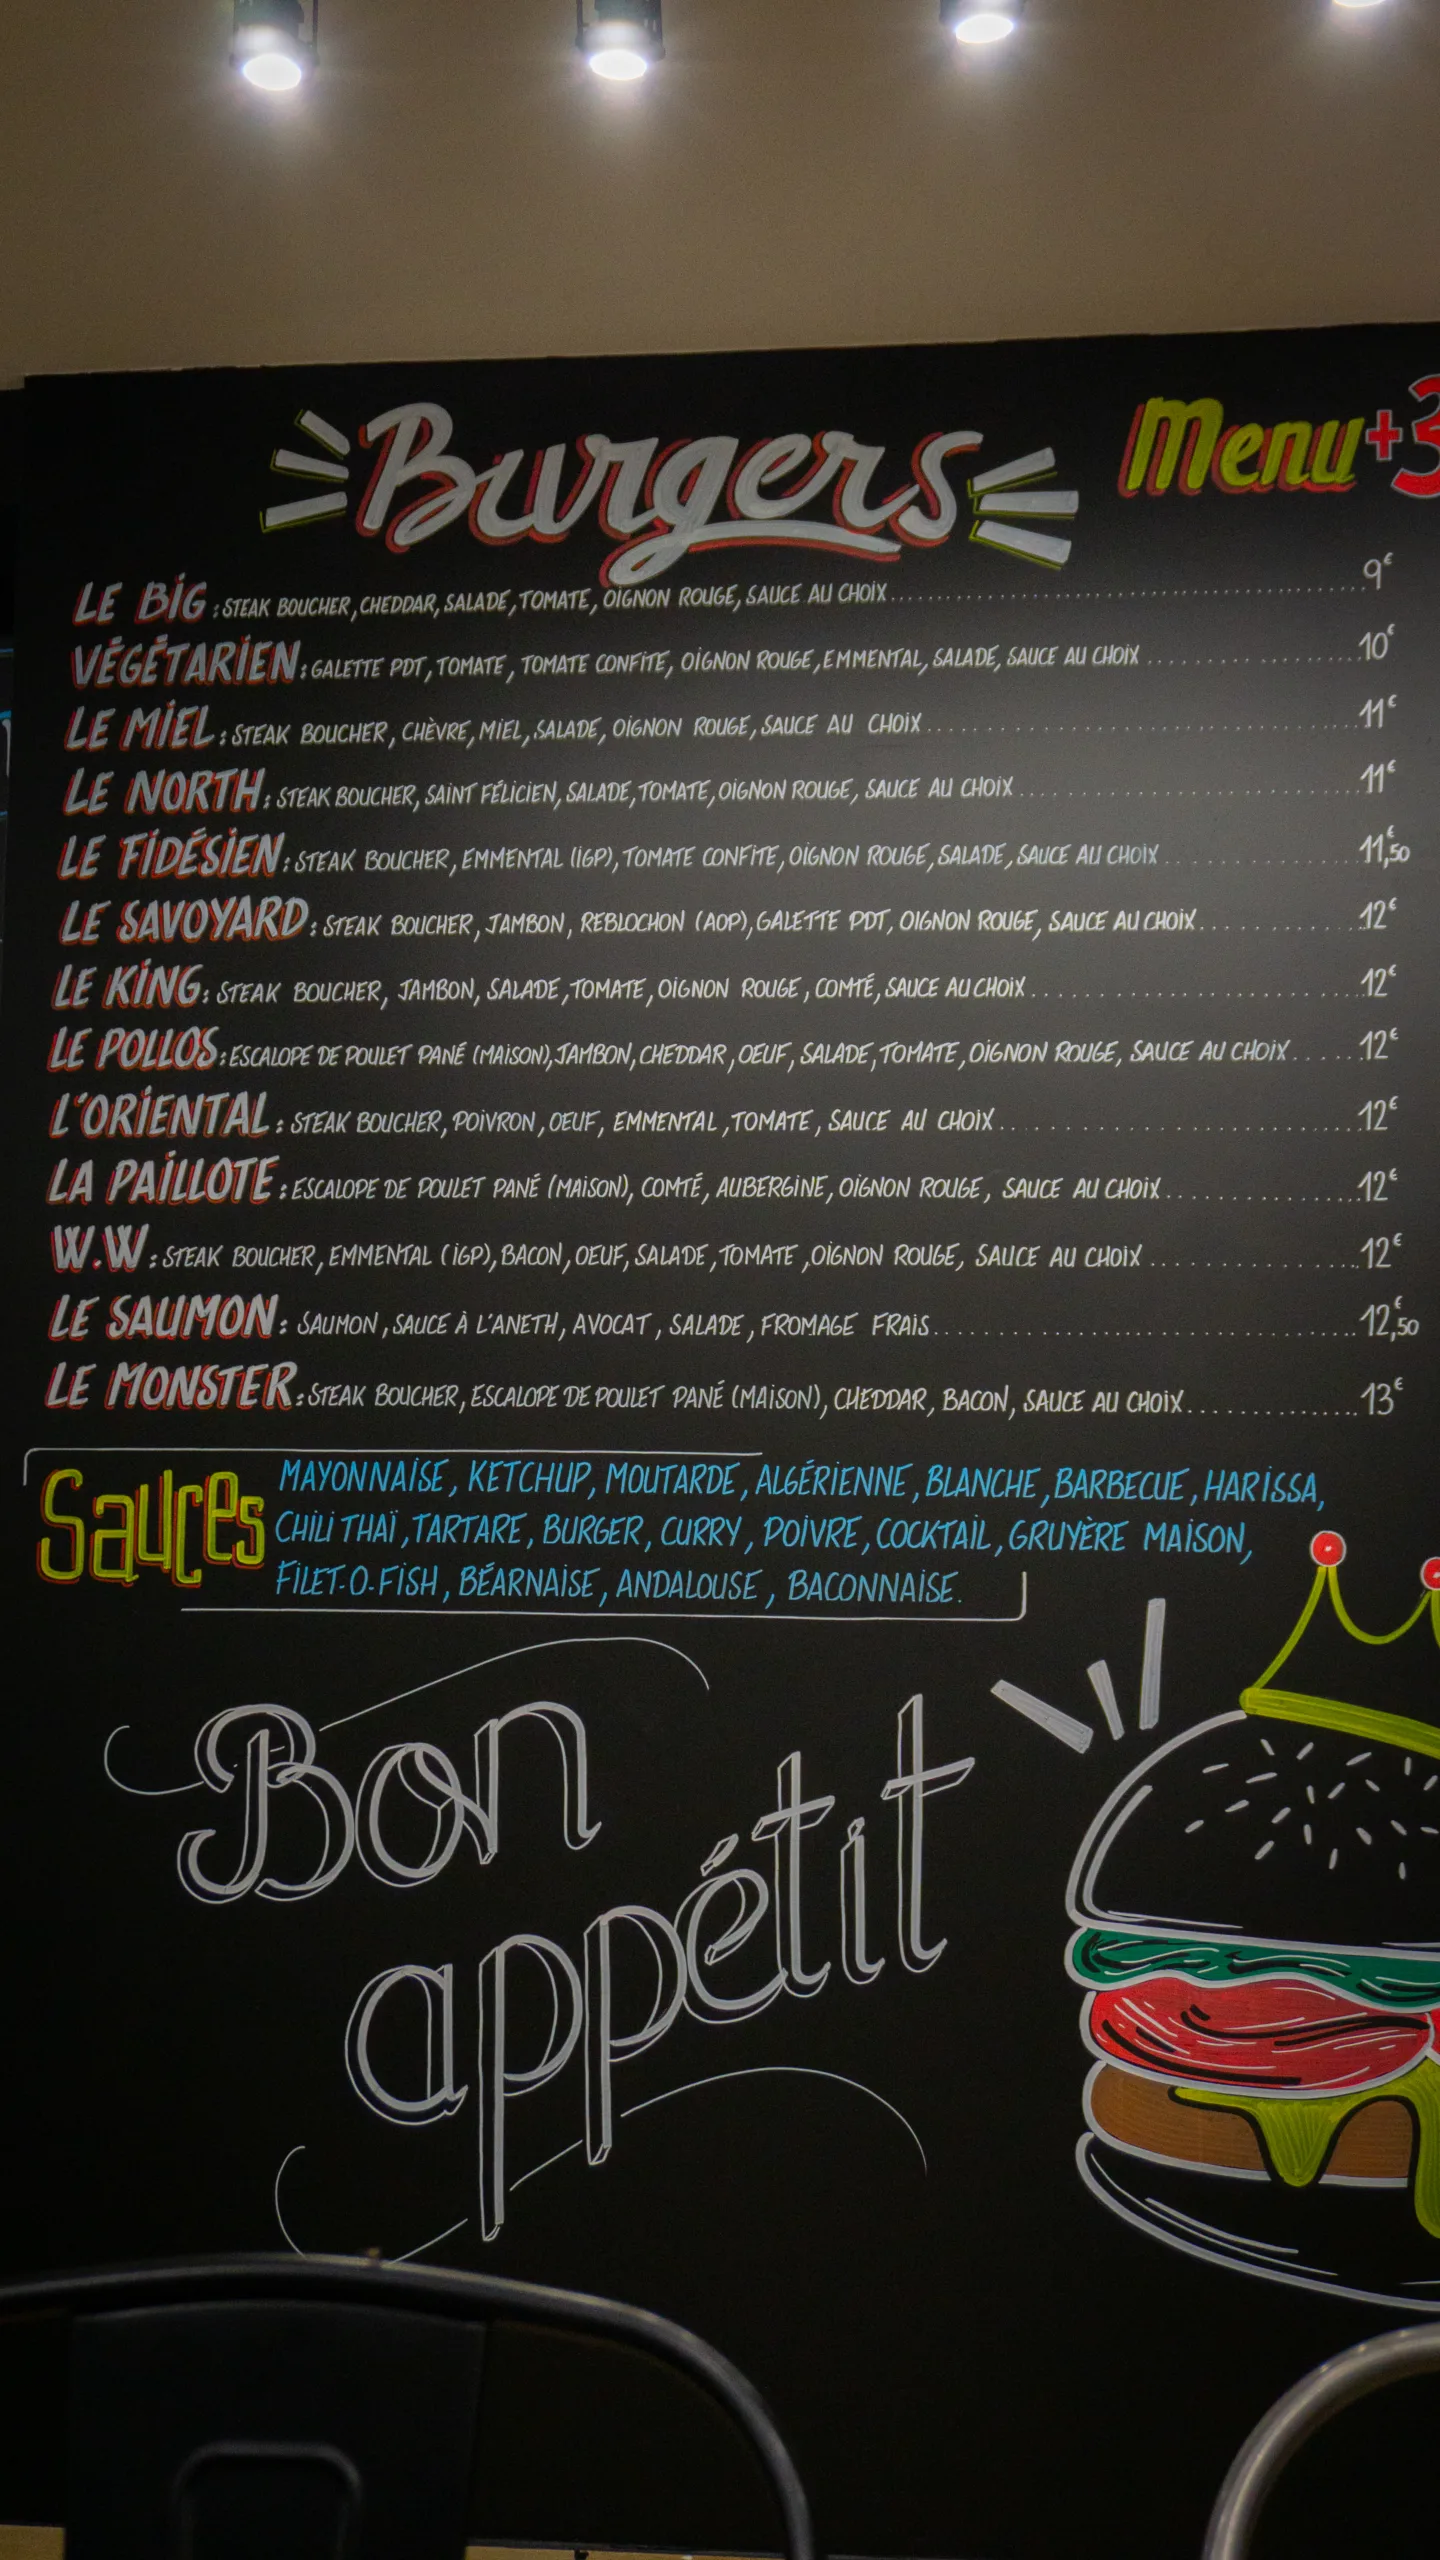 Burgers
Menu +3
LE BIG : STEAK BOUCHER, CHEDDAR, SALADE, TOMATE, OIGNON ROUGE, SAUCE AU CHOIX 9€
VÉGÉTARIEN : GALETTE PDT, TOMATE, TOMATE CONFITE, OIGNON ROUGE, EMMENTAL, SALADE, SAUCE AU CHOIX 10€
LE MIEL : STEAK BOUCHER, CHÈVRE, MIEL, SALADE, OIGNON ROUGE, SAUCE AU CHOIX 11€
LE NORTH : STEAK BOUCHER, SAINT FÉLICIEN, SALADE, TOMATE, OIGNON ROUGE, SAUCE AU CHOIX 11€
LE FIDÉSIEN : STEAK BOUCHER, EMMENTAL (IGP), TOMATE CONFITE, OIGNON ROUGE, SALADE, SAUCE AU CHOIX 11€,50
LE SAVOYARD : STEAK BOUCHER, JAMBON, REBLOCHON (AOP), GALETTE PDT, OIGNON ROUGE, SAUCE AU CHOIX 12€
LE KING : STEAK BOUCHER, JAMBON, SALADE, TOMATE, OIGNON ROUGE, COMTÉ, SAUCE AU CHOIX 12€
LE POLLOS : ESCALOPE DE POULET PANÉ (MAISON), JAMBON, CHEDDAR, OEUF, SALADE, TOMATE, OIGNON ROUGE, SAUCE AU CHOIX 12€
L'ORIENTAL : STEAK BOUCHER, POIVRON, OEUF, EMMENTAL, TOMATE, SAUCE AU CHOIX 12€
LA PAILLOTE : ESCALOPE DE POULET PANÉ (MAISON), COMTÉ, AUBERGINE, OIGNON ROUGE, SAUCE AU CHOIX 12€
W.W : STEAK BOUCHER, EMMENTAL (IGP), BACON, OEUF, SALADE, TOMATE, OIGNON ROUGE, SAUCE AU CHOIX 12€
LE SAUMON : SAUMON, SAUCE À L'ANETH, AVOCAT, SALADE, FROMAGE FRAIS 12€,50
LE MONSTER : STEAK BOUCHER, ESCALOPE DE POULET PANÉ (MAISON), CHEDDAR, BACON, SAUCE AU CHOIX 13€
Sauces
MAYONNAISE, KETCHUP, MOUTARDE, ALGÉRIENNE, BLANCHE, BARBECUE, HARISSA,
CHILI THAÏ, TARTARE, BURGER, CURRY, POIVRE, COCKTAIL, GRUYÈRE MAISON,
FILET-O-FISH, BÉARNAISE, ANDALOUSE, BACONNAISE.
Bon
appétit